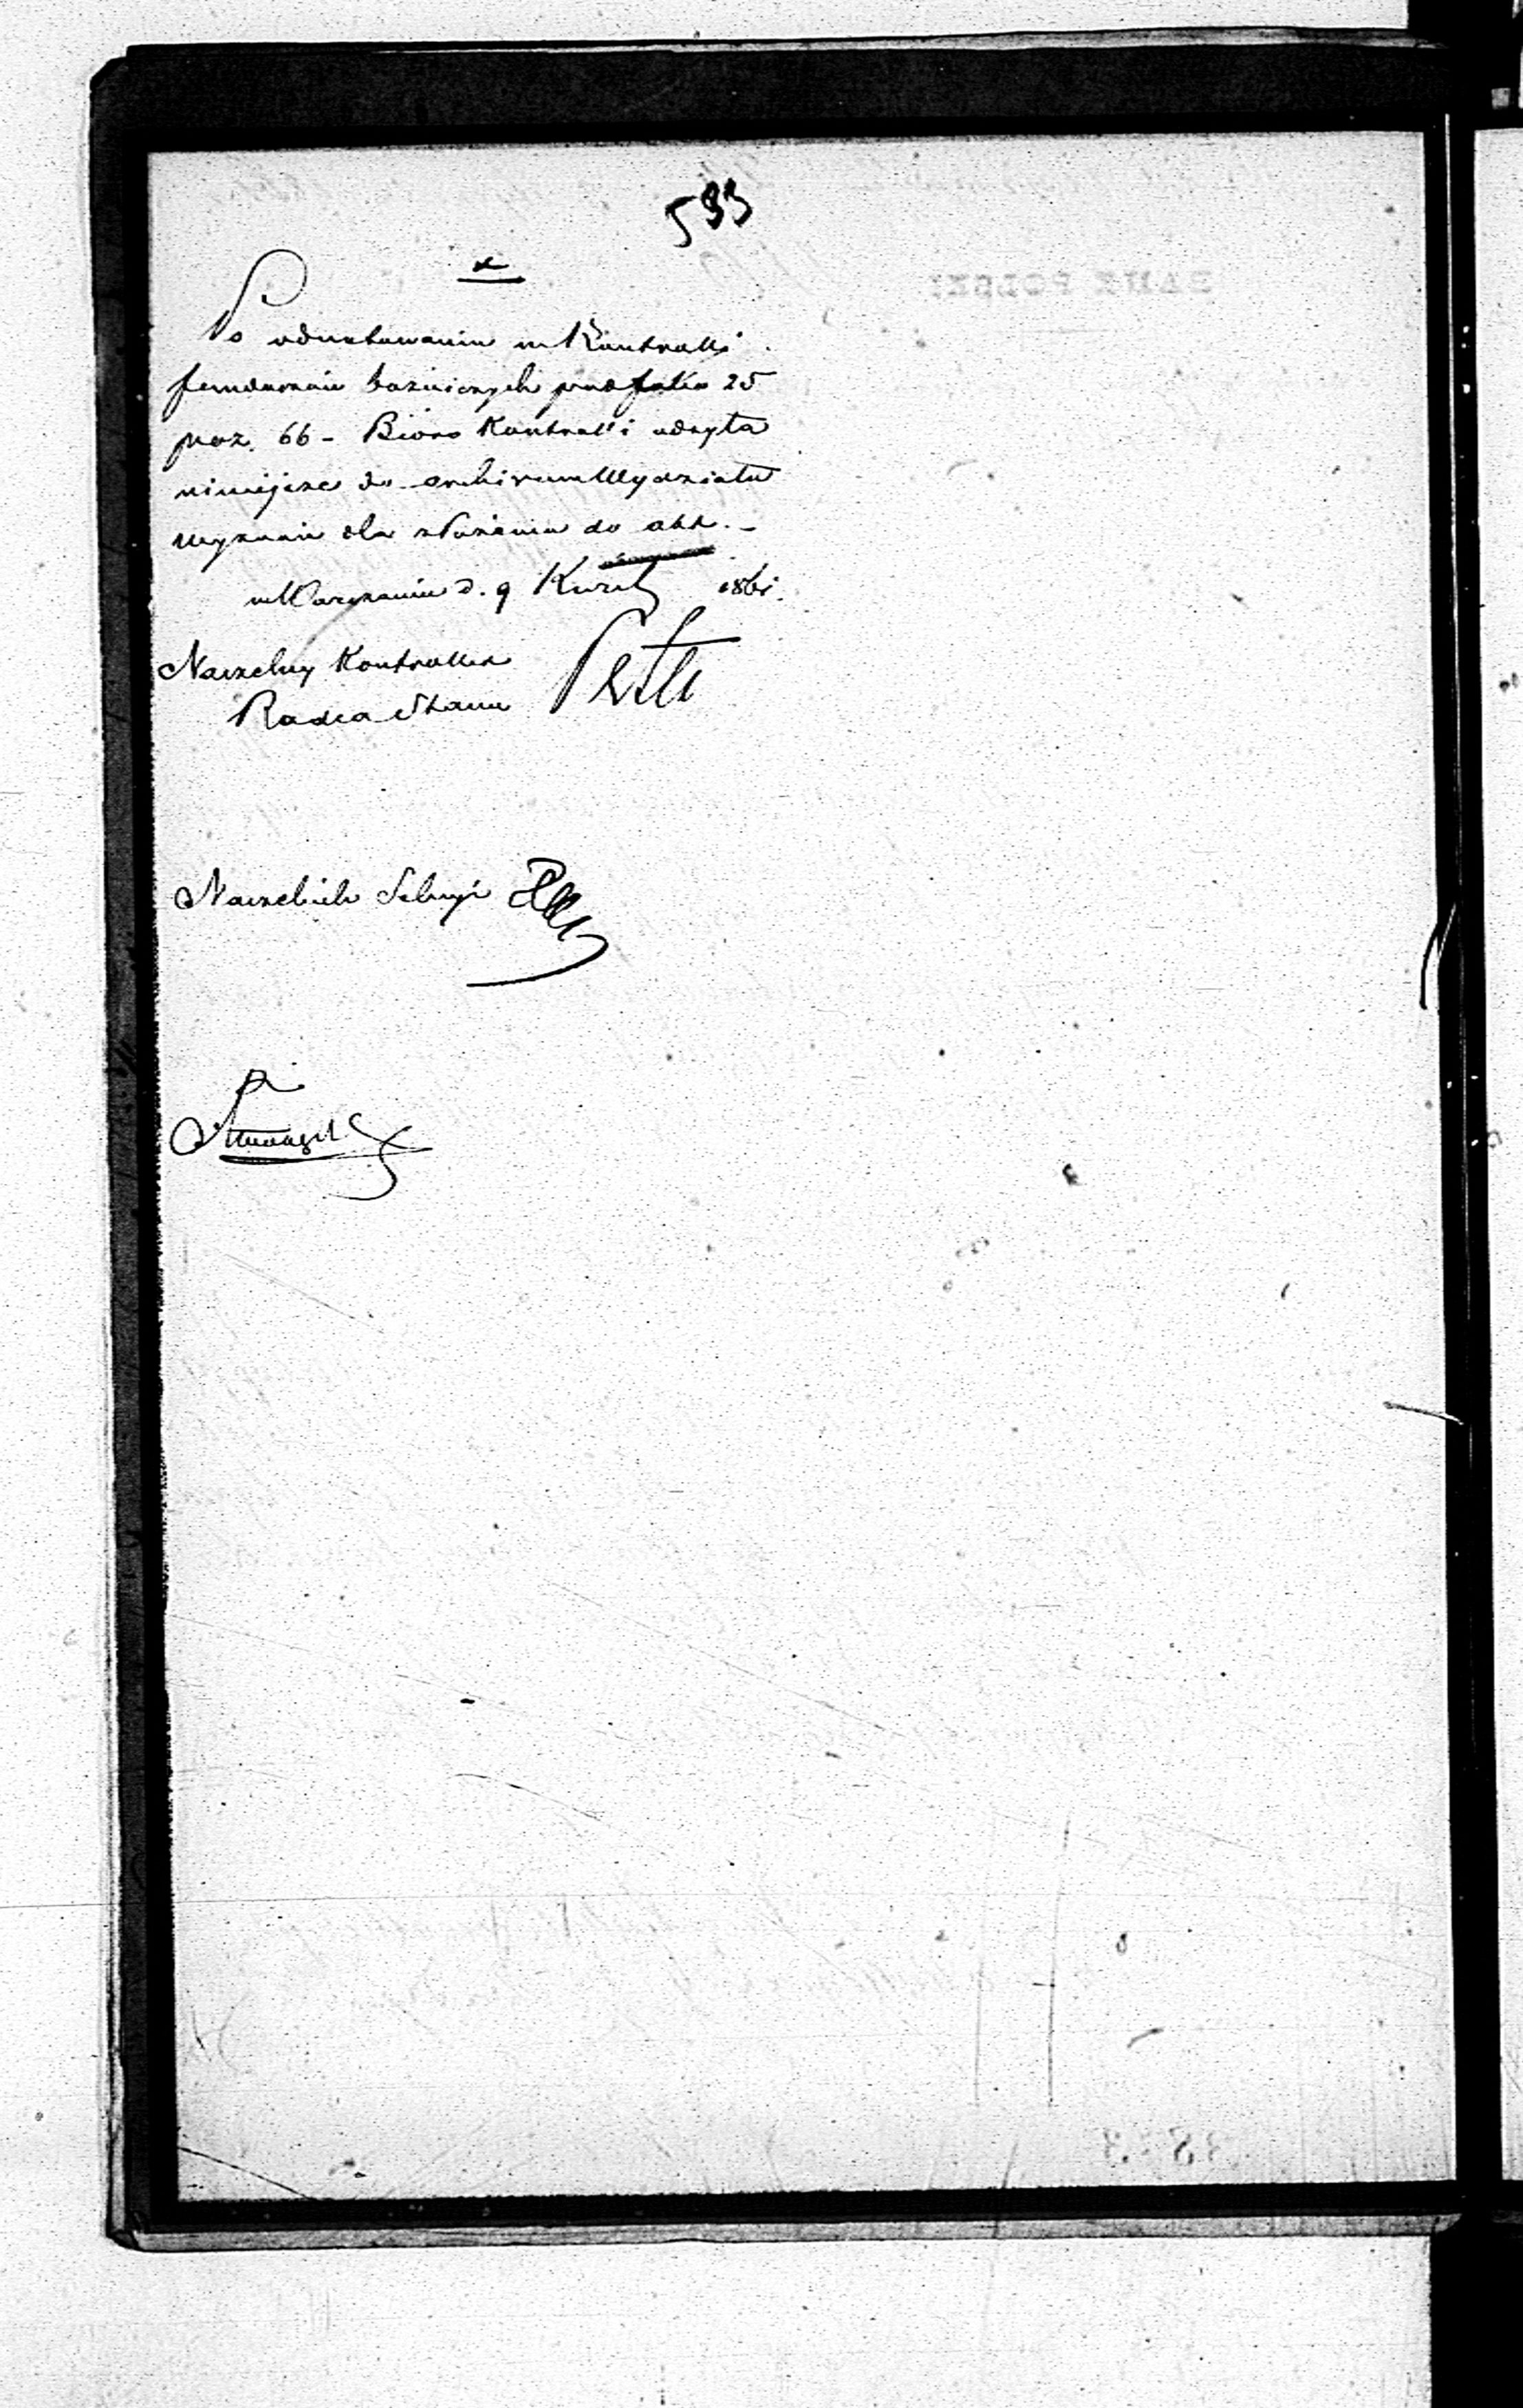 593
Po odnotowaniu w Kontrolli
funduszów bożniczych pod folio 25
poz. 66 - Bióro Kontrolli odsyła
niniejsze do archivum Wydziału
Wyznań dla złożenia do akt. -
w Warszawie d. 9 1861.
Naczelny Kontroller
Radca Stanu
Naczelnik Sekcyi
BANK POLSKI